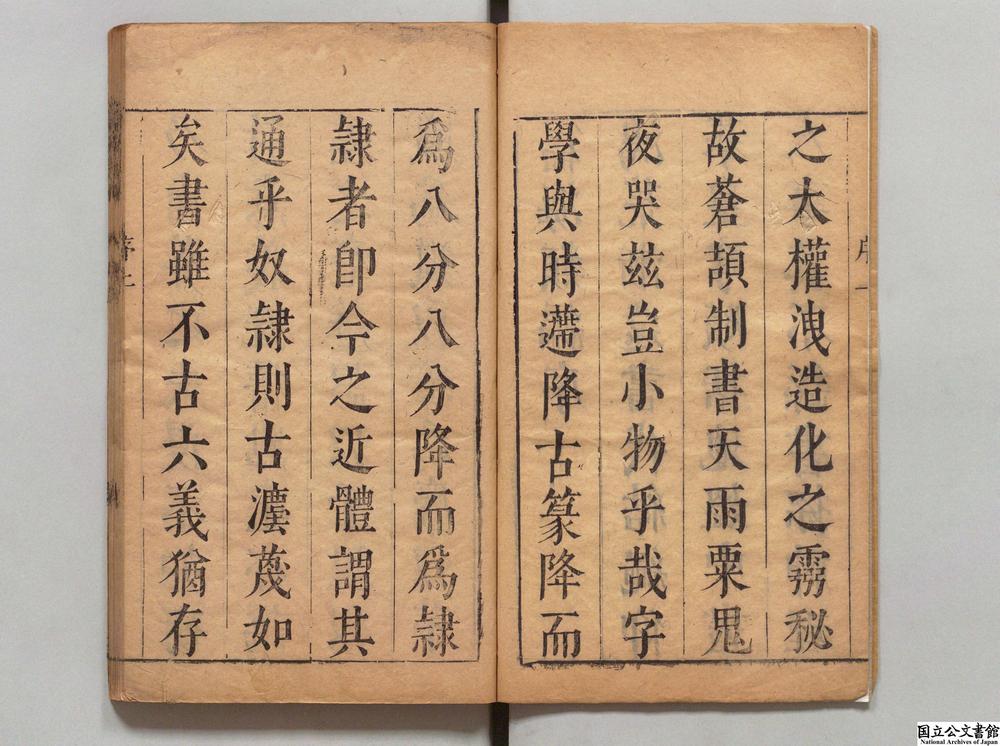 之大權洩造化之靈秘
故蒼頡制書天雨粟鬼
夜哭茲豈小物乎哉字
學與時遷降古篆降而
爲八分八分降而爲隸
隸者卽今之近體謂其
通乎奴隸則古灋蔑如
矣書雖不古六義猶存
国立公文書館
National Archives of Japan